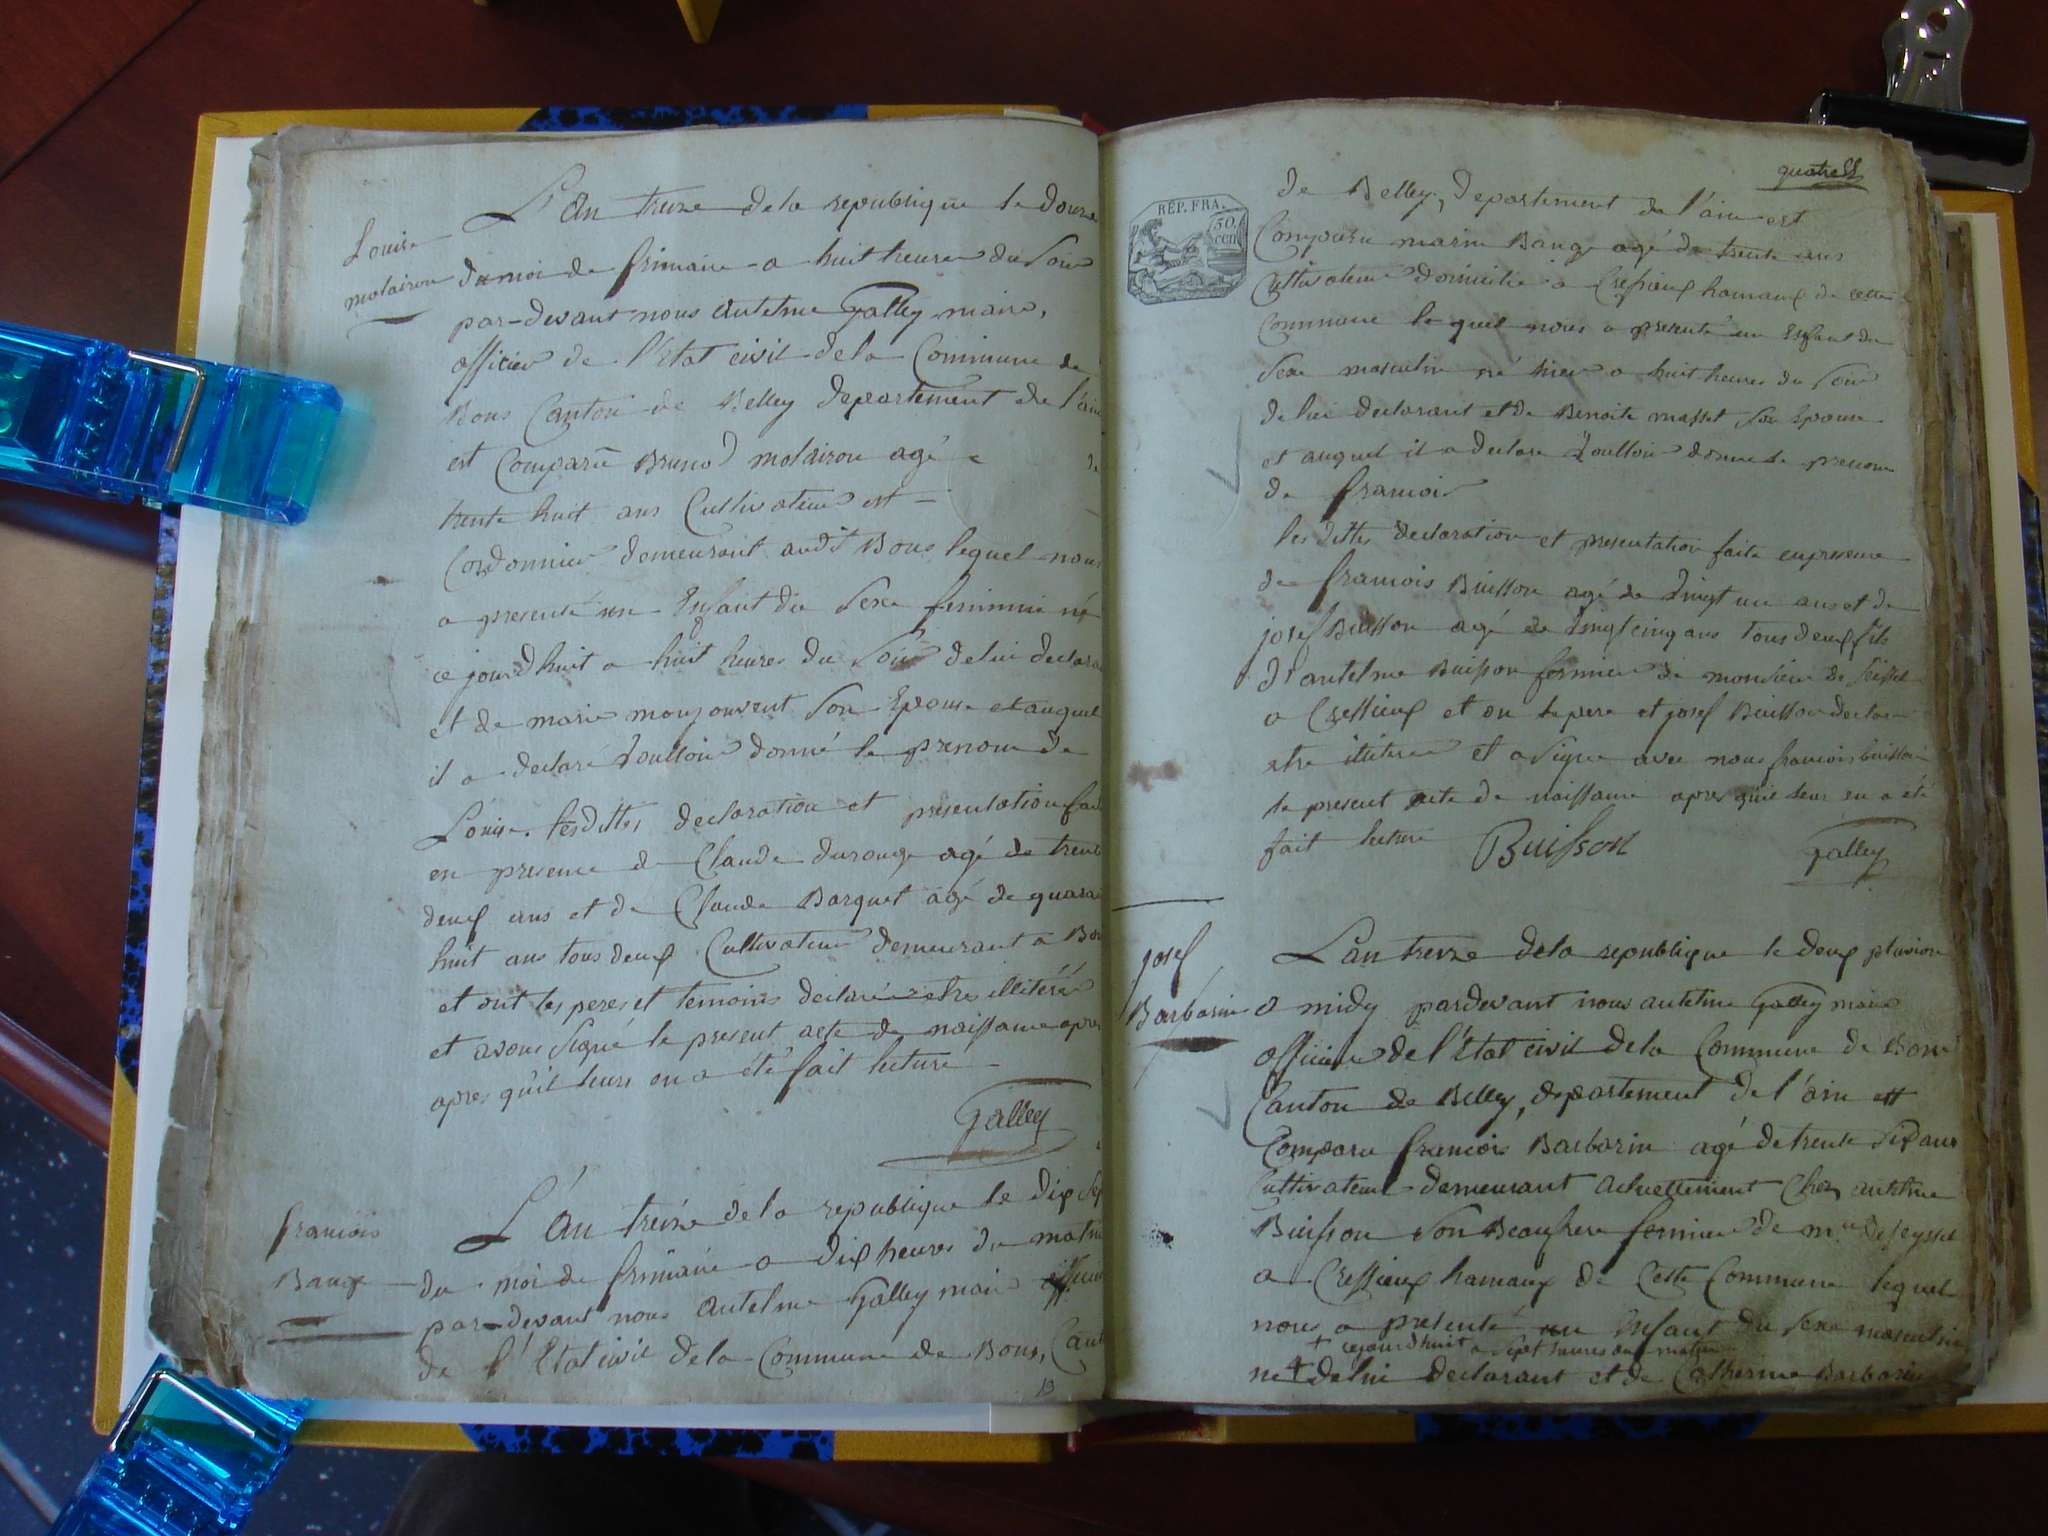 Louise
molairon
L'an treize de la republique le douze
du moi de frimaire a huit heures du soir
par-devant nous antelme Galley maire,
officier de l'Etat civil de la Commune de
Bons Canton de Belley departement de l'ain
est Comparu Bruno molairon agé de
trente huit ans Cultivateur et
Cordonnier demeurant audit Bons lequel nous
a presenté un Enfant du sexe feminin né
ce jourdhuit a huit heures du soir de lui declara
et de marie monjouvent son Epouse et auquel
il a declaré voulloir donné le prenom de
Louise. lesdittes declaration et presentation fai
en presence de Claude durouge agé de trent
deux ans et de Claude Barquet agé de quara
huit ans tous deux Cultivateur demeurant a Bon
et ont les peres et temoins declaré etre illitéré
et avons signé le present acte de naissance apres
apres qu'il leurs en a été fait lecture
Galley
francois
Bauge
L'an treize de la republique le dix sep
du moi de frimaire a dix heures du matin
par-devant nous antelme Galley maire officier
de l'Etat civil de la Commune de Bons, Cant
13
quatre
REP. FRA.
50
cen
de Belley, departement de l'ain est
Comparu marin Bauge agé de trente ans
Cultivateur domicilié a Cressieux hamaux de cette
Commune lequel nous a presenté un Enfant du
sexe masculin né hier a huit heures du soir
de lui declarant et de Benoite masset son Epouse
et auquel il a declaré voulloir donné le prenom
de francois
les dittes declaration et presentation faite en presence
de francois Buisson agé de vingt un ans et de
josef Buisson agé de vingt cinq ans tous deux fils
d'antelme Buisson fermier de monsieur de seissel
a Cressieux et on le pere et josef Buisson declaré
etre illiteré et a signé avec nous francois buisson
le present acte de naissance apres qu'il leur en a été
fait lecture
Buisson
Galley
josef
Barbarin
L'an treize de la republique le deux pluviose
a midy pardevant nous antelme Galley maire
officier de l'Etat civil de la Commune de Bons
Canton de Belley, departement de l'ain est
Comparu francois Barbarin agé de trente six ans
Cultivateur demeurant actuellement Chez antelme
Buisson son Beaufrere fermier de mr. de seyssel
a Cressieux hamaux de Cette Commune lequel
nous a presenté un Enfant du sexe masculin
+ cejourdhuit a sept heures du matin
né + de lui declarant et de Catherine Barbarin